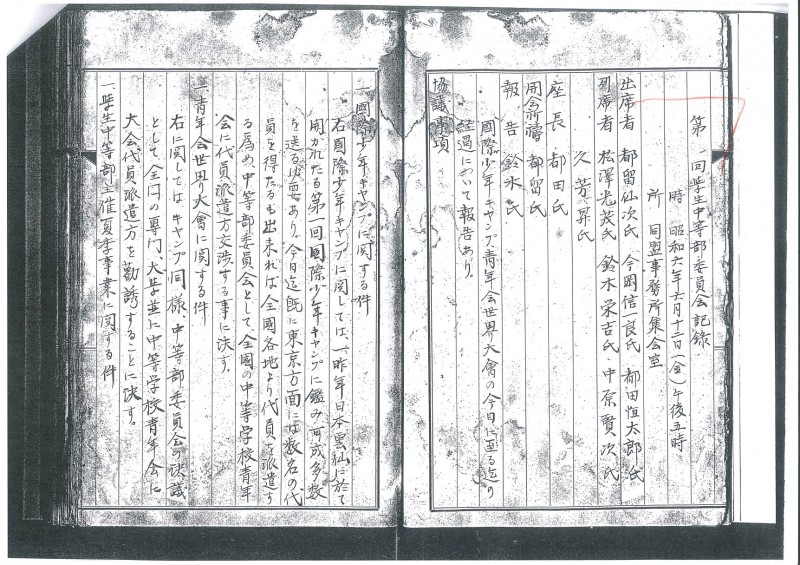 第一回学生中等部委員会記録
時 昭和六年六月十二日(金)午後五時
所 同盟事務所集会室
出席者 都留仙次氏 今岡信一良氏 都田恒太郎氏
列席者 松澤光茂氏 鈴木栄吉氏 中原賢次氏
久芳昇氏
座長 都田氏
開会祈禱 都留氏
報告 鈴木氏
國際少年キャンプ、青年会世界大會の今日に至る迄の
経過について報告あり。
協議事項
一、國際少年キャンプに関する件
右國際少年キャンプに関しては、一昨年日本雲仙に於て
開かれたる第一回國際少年キャンプに鑑み、可成多数
を送る必要あり。今日迄既に東京方面には数名の代
員を得たるも出来れば全國各地より代員を派遣す
る為め、中等部委員会として、全國の中等学校青年
会に代員派遣方交渉する事に決す。
二、青年会世界大會に関する件
右に関してはキャンプ同様、中等部委員会の決議
として、全国の専門、大学並に中等学校青年会に
大会代員派遣方を勧誘することに決す。
一、学生中等部主催夏季事業に関する件